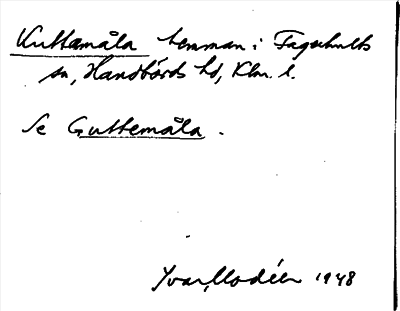 Kuttamåla hemman i Fagerhults
sn, Handbörds hd, Klm. l.
Se Guttemåla.
Ivar Modéer 1948